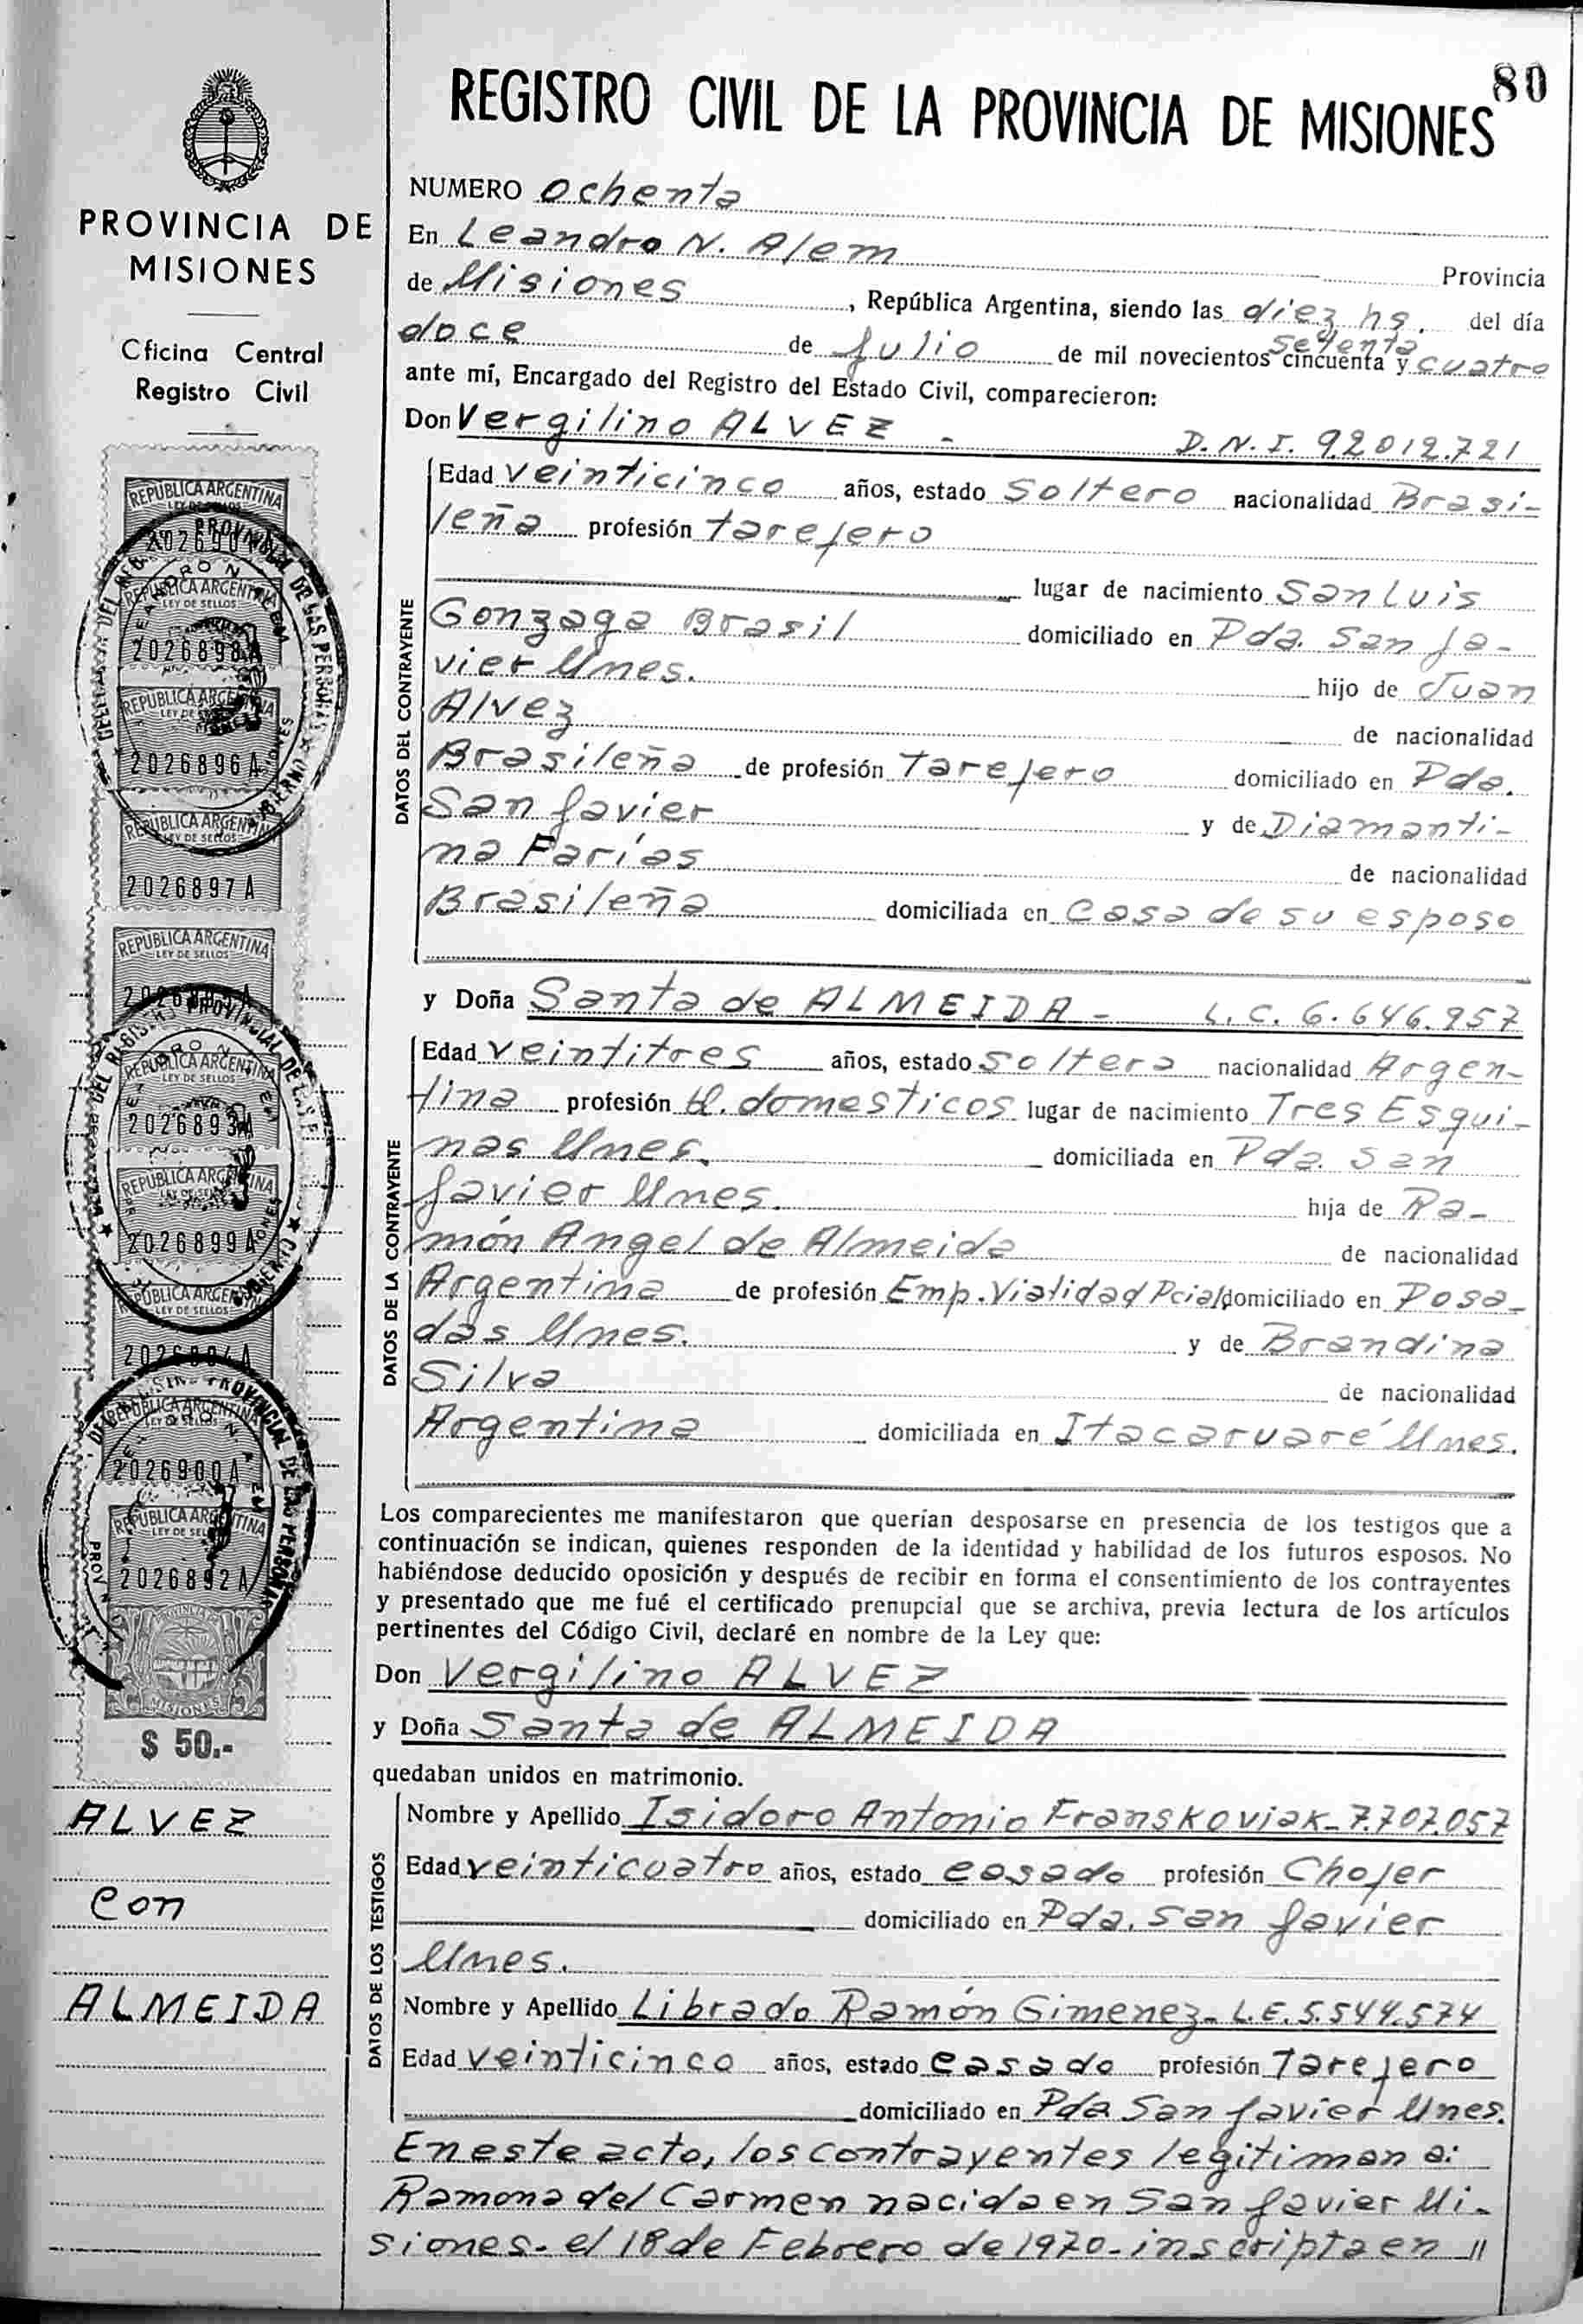 80
REGISTRO CIVIL DE LA PROVINCIA DE MISIONES
PROVINCIA DE
MISIONES
Oficina Central
Registro Civil
REPUBLICA ARGENTINA
LEY DE SELLOS
2026898A
REPUBLICA ARGENTINA
2026896A
REPUBLICA ARGENTINA
LEY DE SELLOS
2026897A
REPUBLICA ARGENTINA
LEY DE SELLOS
REPUBLICA ARGENTINA
LEY DE SELLOS
2026893A
REPUBLICA ARGENTINA
2026899A
LEY DE SELLOS
REPUBLICA ARGENTINA
2026900A
REPUBLICA ARGENTINA
2026892A
MISIONES
$ 50.-
ALVEZ
con
ALMEIDA
NUMERO ochenta
En Leandro N. Alem Provincia
de Misiones, República Argentina, siendo las diez hs. del día
doce de Julio de mil novecientos cincuenta setenta y cuatro
ante mí, Encargado del Registro del Estado Civil, comparecieron:
Don Vergilino ALVEZ - D.N.I. 92012.721
DATOS DEL CONTRAYENTE
Edad veinticinco años, estado soltero nacionalidad Brasi-
leña profesión tarefero
lugar de nacimiento San Luis
Gonzaga Brasil domiciliado en Pda. San Ja-
vier Mnes. hijo de Juan
Alvez de nacionalidad
Brasileña de profesión Tarefero domiciliado en Pda.
San Javier y de Diamanti-
na Farías de nacionalidad
Brasileña domiciliada en casa de su esposo
y Doña Santa de ALMEIDA - L.C. 6.646.957
DATOS DE LA CONTRAYENTE
Edad veintitres años, estado soltera nacionalidad Argen-
tina profesión Q. domesticos lugar de nacimiento Tres Esqui-
nas Mnes. domiciliada en Pda. San
Javier Mnes. hija de Ra-
món Angel de Almeida de nacionalidad
Argentina de profesión Emp. Vialidad Pcial domiciliado en Posa-
das Mnes. y de Brandina
Silva de nacionalidad
Argentina domiciliada en Itacaruaré Mnes.
Los comparecientes me manifestaron que querían desposarse en presencia de los testigos que a
continuación se indican, quienes responden de la identidad y habilidad de los futuros esposos. No
habiéndose deducido oposición y después de recibir en forma el consentimiento de los contrayentes
y presentado que me fué el certificado prenupcial que se archiva, previa lectura de los artículos
pertinentes del Código Civil, declaré en nombre de la Ley que:
Don Vergilino ALVEZ
y Doña Santa de ALMEIDA
quedaban unidos en matrimonio.
DATOS DE LOS TESTIGOS
Nombre y Apellido Isidoro Antonio Franskoviak - 7.707.057
Edad veinticuatro años, estado casado profesión Chofer
domiciliado en Pda. San Javier
Mnes.
Nombre y Apellido Librado Ramón Gimenez - L.E. 5.544.574
Edad veinticinco años, estado casado profesión Tarefero
domiciliado en Pda San Javier Mnes.
En este acto, los contrayentes legitiman a:
Ramona del Carmen nacida en San Javier Mi-
siones - el 18 de Febrero de 1970 - inscripta en //